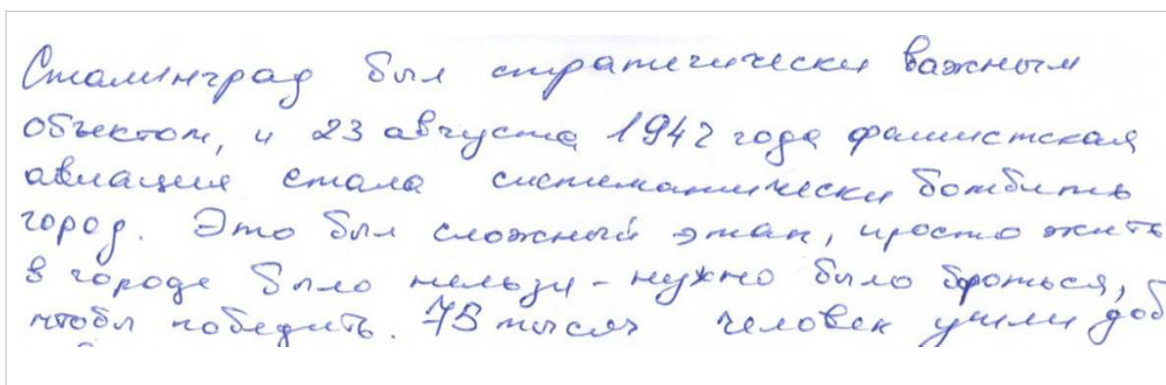 Сталинград был стратегически важным
объектом, и 23 августа 1942 года фашистская
авиация стала систематически бомбить
город. Это был сложный этап, просто жить
в городе было нельзя - нужно было бороться,
чтобы победить. 75 тысяч человек ушли доб